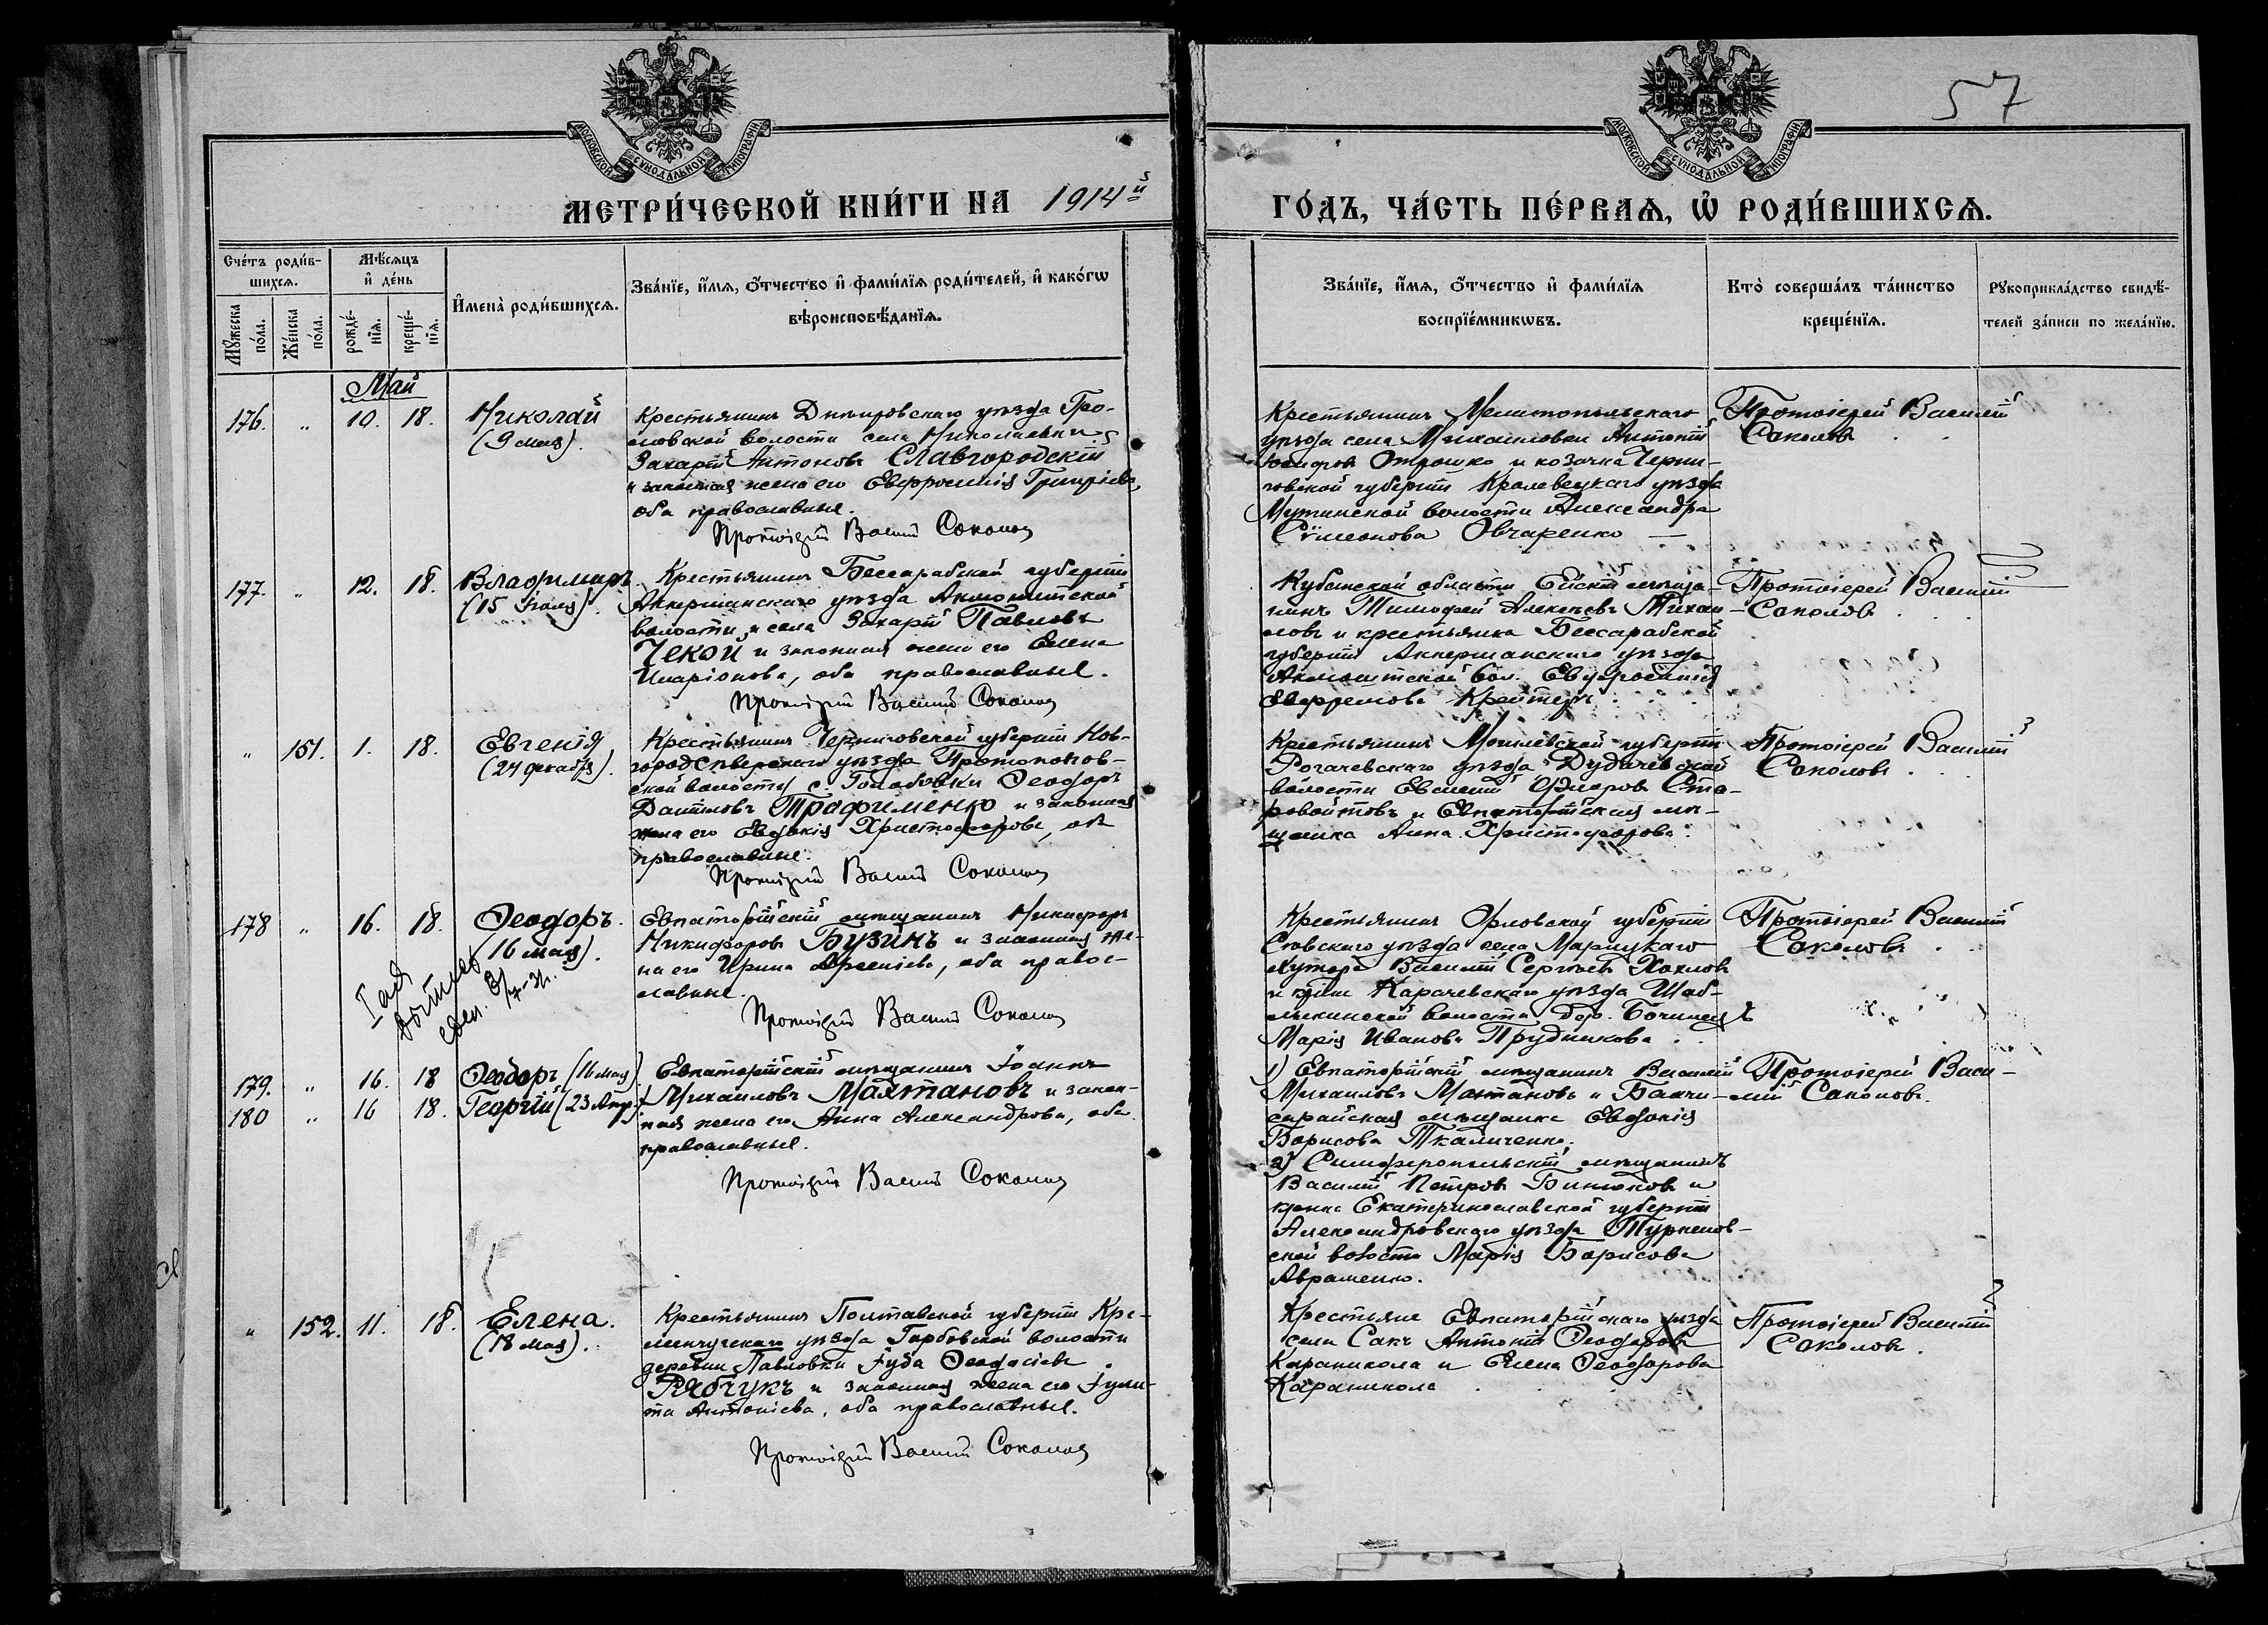 57
МОСКОВСКОЙ СУНОДАЛЬНОЙ ТИПОГРАФІИ
МОСКОВСКОЙ СУНОДАЛЬНОЙ ТИПОГРАФІИ
МЕТРИ́ЧЕСКОЙ КНИ́ГИ НА 1914й
ГО́ДЪ, ЧА́СТЬ ПЕ́РВАЯ, Ѡ҆ РОДИ́ВШИХСЯ.
Сче́тъ роди́в-
шихся.
Мѣ́сяцъ
и҆ де́нь
Му́жеска по́ла.
Же́нска по́ла.
рожде́-
нїя.
креще́-
нїя.
И҆мена̀ роди́вшихся.
Зва́нїе, и҆́мя, ѻ҆́тчество и҆ фами́лїя роди́телей, и҆ како́гѡ
вѣроисповѣ́данїя.
Зва́нїе, и҆́мя, ѻ҆́тчество и҆ фами́лїя
воспрїе́мникѡвъ.
Кто̀ соверша́лъ та́инство
креще́нїя.
Рукоприкла́дство свидѣ́-
телей за́писи по жела́нїю.
Май
176. " 10. 18. Николай
(9 мая).
Крестьянинъ Днѣпровскаго уѣзда Гро-
овской волости села Николаевки
Захарій Антоновъ Славгородскій
и законная жена его Евфросинія Григоріева,
оба православные.
Протоіерей Василій Соколовъ
Крестьянинъ Мелитопольскаго
уѣзда села Михайловки Антоній
Отрошко и козачка Черни-
говской губерніи Кролевецкаго уѣзда
Мутинской волости Александра
Сѵмеонова Овчаренко —
Протоіерей Василій
Соколовъ
177. " 12. 18. Владиміръ
(15 Іюля).
Крестьянинъ Бессарабской губерніи
Аккерманскаго уѣзда
волости и села Захарій Павловъ
Чекой и законная жена его Елена
Иларіонова, оба православные.
Протоіерей Василій Соколовъ
Кубанской области Ейскій мѣща-
нинъ Тимофей Алексѣевъ Михай-
ловъ и крестьянка Бессарабской
губерніи Аккерманскаго уѣзда
вол. Евфросинія
Крейтеръ
Протоіерей Василій
Соколовъ
" 151. 1. 18. Евгенія
(24 декабря).
Крестьянинъ Черниговской губерніи Нов-
городсѣверскаго уѣзда Протопопов-
ской волости с. Ѳеодоръ
Даніиловъ Трофименко и законная
жена его Евдокія Христофорова, оба
православные.
Протоіерей Василій Соколовъ
Крестьянинъ Могилевской губерніи
Рогачевскаго уѣзда Дудичевской
волости Евсевій Ста-
ровойтовъ и Евпаторійская мѣ-
щанка Анна Христофорова.
Протоіерей Василій
Соколовъ
178 " 16. 18. Ѳеодоръ.
16 мая).
Евпаторійскій мѣщанинъ Никифоръ
Никифоровъ Бузинъ и законная же-
на его Ирина Арсеніева, оба правос-
лавные.
Протоіерей Василій Соколовъ
Крестьянинъ Орловской губерніи
Сѣвскаго уѣзда села Марицкаго
хутора Василій Сергѣевъ Хохловъ
и Карачевскаго уѣзда Шаб-
лыкинской волости дер.
Марія Иванова Трудникова
Протоіерей Василій
Соколовъ
179. " 16. 18 Ѳеодоръ (16 мая)
180 " 16 18. Георгій (23 Апр.)
Евпаторійскій мѣщанинъ Іоаннъ
Михаиловъ Маятановъ и закон-
ная жена его Анна Александрова, оба
православные.
Протоіерей Василій Соколовъ
1) Евпаторійскій мѣщанинъ Василій
Михаиловъ Маятановъ и Бахчи-
сарайская мѣщанка Евдокія
Борисова Ткаличенко.
2) Симферопольскій мѣщанинъ
Василій Петровъ Бинюковъ и
кр-нка Екатеринославской губерніи
Александровскаго уѣзда Туркенов-
ской волости Марія Борисова
Авраменко.
Протоіерей Васи-
лій Соколовъ.
" 152. 11. 18. Елена.
(18 мая).
Крестьянинъ Полтавской губерніи Кре-
менчугскаго уѣзда волости
деревни Павловки Іуда Ѳеодосіевъ
Рябчукъ и законная жена его Іули-
та Антоніева, оба православные.
Протоіерей Василій Соколовъ
Крестьяне Евпаторійскаго уѣзда
села Сакъ Антоній Ѳеодоровъ
Караникола и Елена Ѳеодорова
Караникола
Протоіерей Василій
Соколовъ.